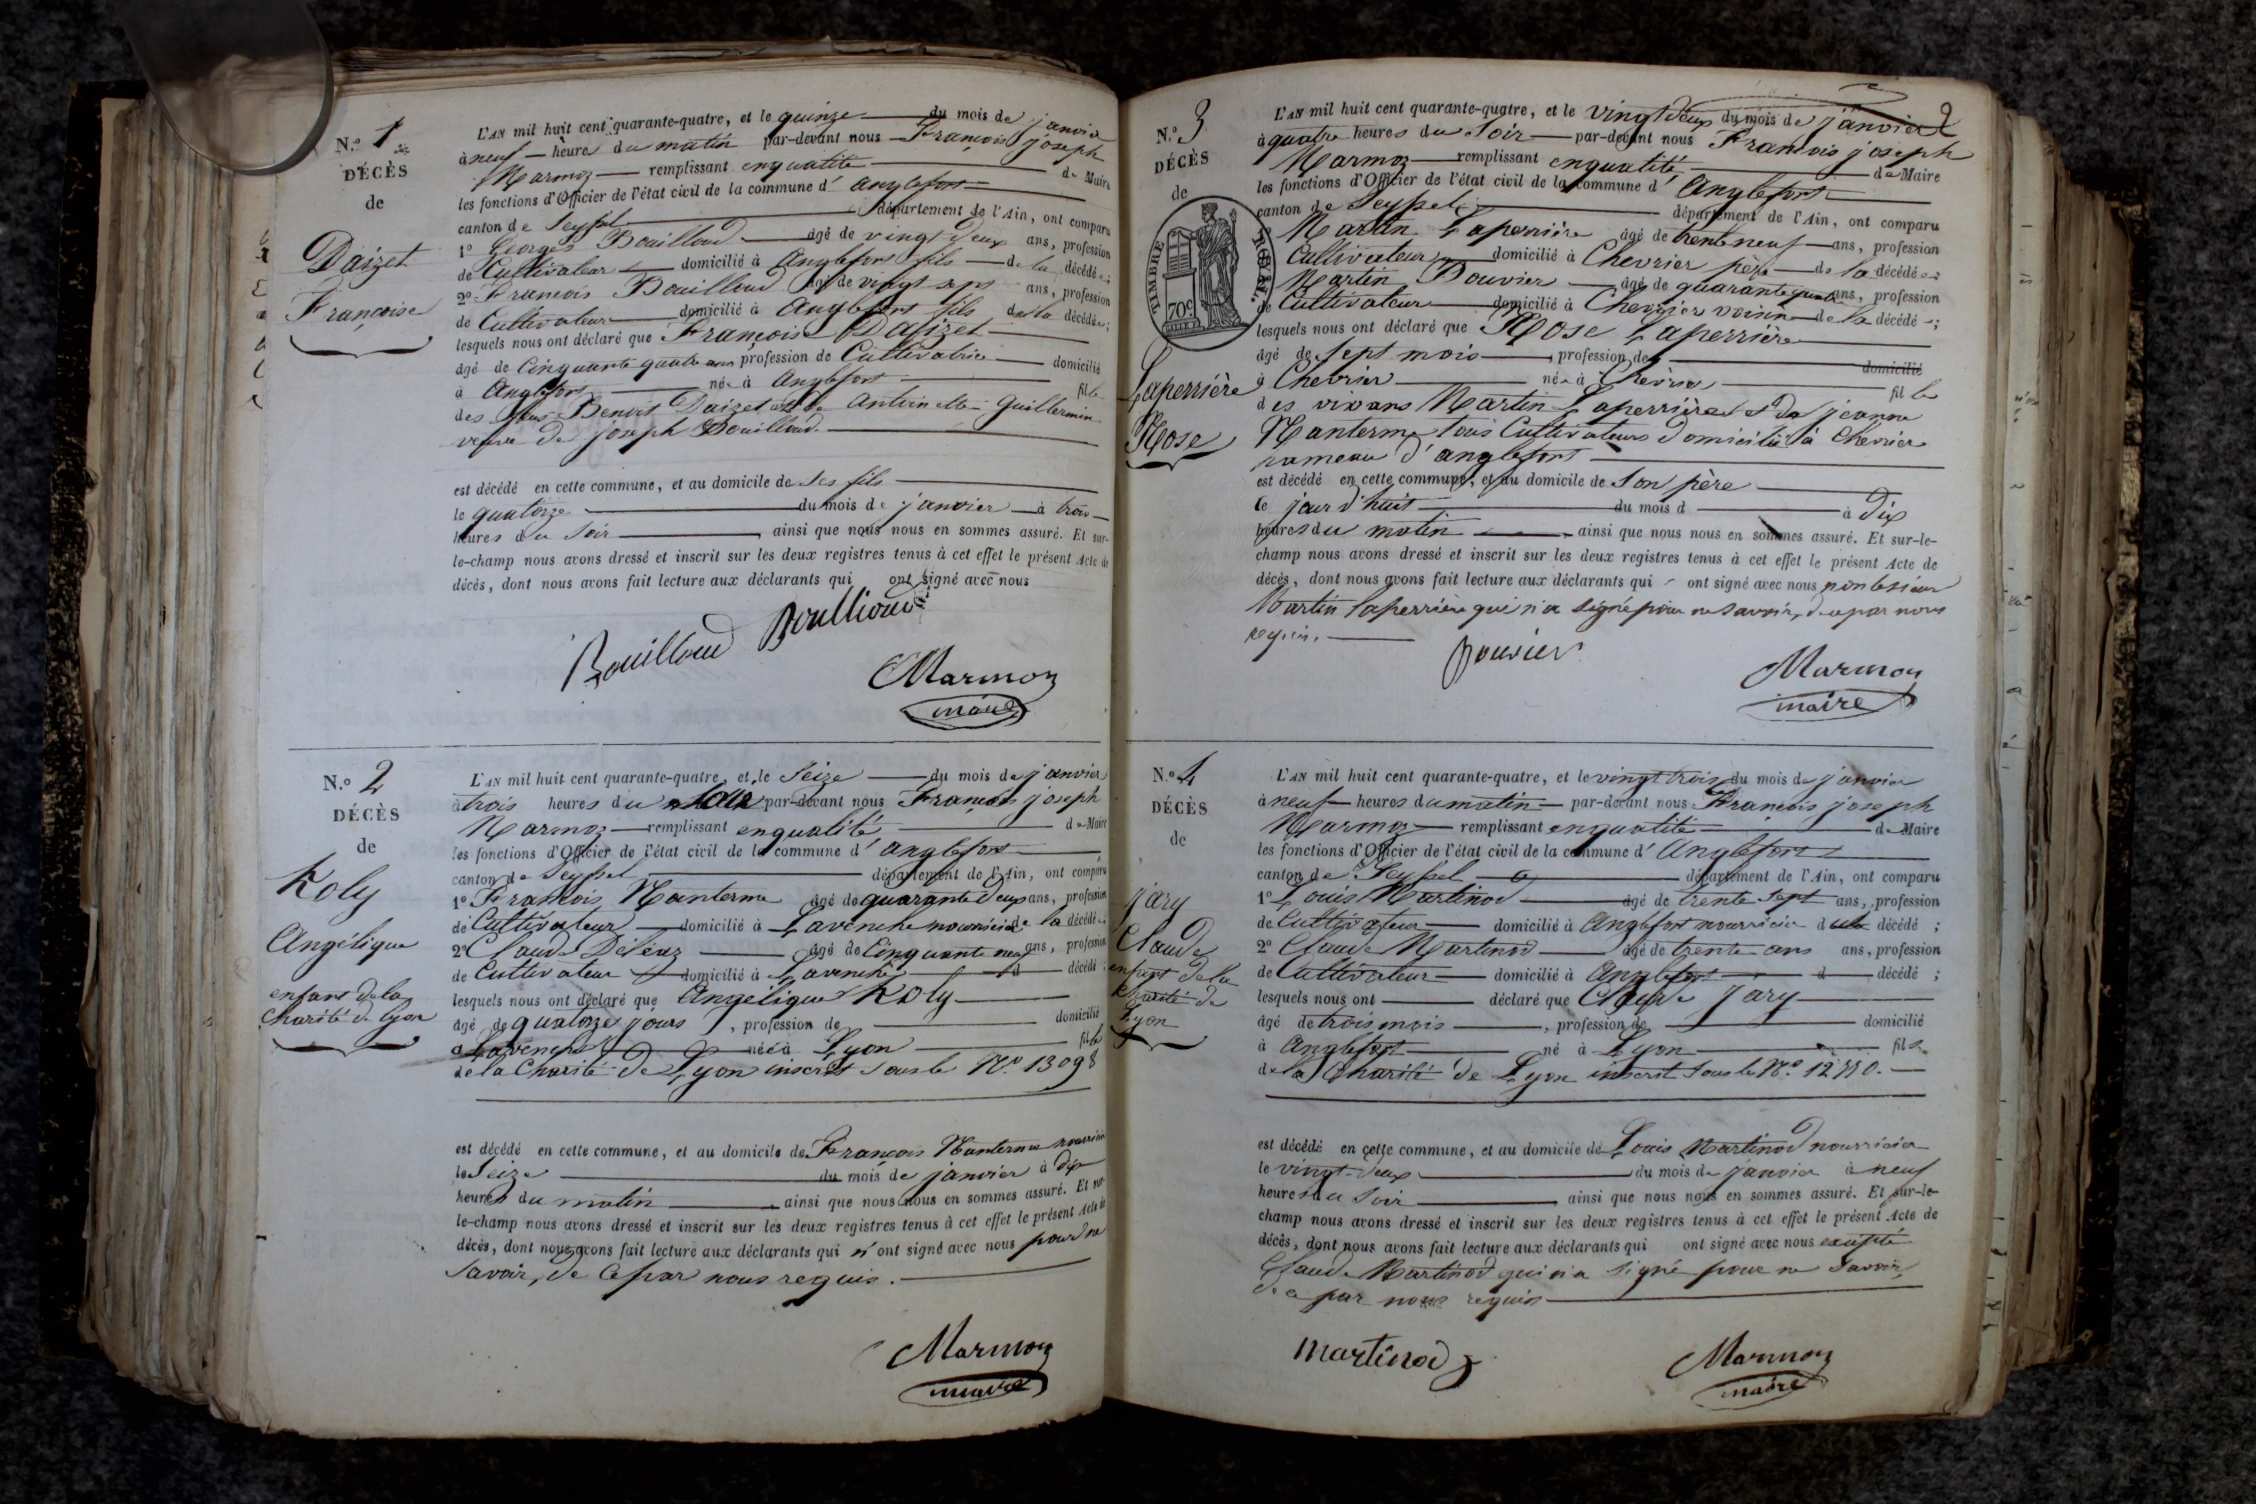 N.º 1
DÉCÈS
de
Daizet
Françoise
L'AN mil huit cent quarante-quatre, et le quinze du mois de janvier
à neuf heures du matin par-devant nous François joseph
Marmoz remplissant en qualité de Maire
les fonctions d'Officier de l'état civil de la commune d'anglefort
canton de Seyssel département de l'Ain, ont comparu
1º Georges Bouilloud âgé de vingt deux ans, profession
de Cultivateur domicilié à Anglefort fils de la décédée;
2º François Bouilloud âgé de vingt sept ans, profession
de Cultivateur domicilié à anglefort fils de la décédée;
lesquels nous ont déclaré que Françoise Daizet
âgé de Cinquante quatre ans profession de Cultivatrice domicilié
à Anglefort née à Anglefort fille
des feus Benoit Daizet et de Antoinette Guillermin
veuve de joseph Bouilloud.
est décédé en cette commune, et au domicile de ses fils
le quatorze du mois de janvier à trois
heures du soir, ainsi que nous nous en sommes assuré. Et sur-
le-champ nous avons dressé et inscrit sur les deux registres tenus à cet effet le présent Acte de
décès, dont nous avons fait lecture aux déclarants qui ont signé avec nous
Bouilloud Boullioud
Marmoz
maire
N.º 2
DÉCÈS
de
Koly
Angélique
enfant de la
Charité de Lyon
L'AN mil huit cent quarante-quatre, et le Seize du mois de janvier
à trois heures du soir par-devant nous François joseph
Marmoz remplissant en qualité de Maire
les fonctions d'Officier de l'état civil de la commune d'anglefort
canton de Seyssel département de l'Ain, ont comparu
1º François Manterne âgé de quarante deux ans, profession
de Cultivateur domicilié à Lavenche nourricier de la décédée
2º Claude âgé de Cinquante neuf ans, profession
de Cultivateur domicilié à Lavenche d décédé;
lesquels nous ont déclaré que Angélique Koly
âgé de quatorze jours, profession de domicilié
à Lavenche née à Lyon fille
de la Charité de Lyon inscrit sous le Nº 13098
est décédé en cette commune, et au domicile de François Manterne nourricier
le Seize du mois de janvier à dix
heures du matin, ainsi que nous nous en sommes assuré. Et sur-
le-champ nous avons dressé et inscrit sur les deux registres tenus à cet effet le présent Acte de
décès, dont nous avons fait lecture aux déclarants qui n'ont signé avec nous pour ne
savoir, de ce par nous requis.
Marmoz
maire
2
N.º 3
DÉCÈS
de
TIMBRE ROYAL
70c
Laperrière
Rose
L'AN mil huit cent quarante-quatre, et le vingt deux du mois de janvier
à quatre heures du Soir par-devant nous François joseph
Marmoz remplissant en qualité de Maire
les fonctions d'Officier de l'état civil de la commune d'Anglefort
canton de Seyssel département de l'Ain, ont comparu
Martin Laperrière âgé de trente neuf ans, profession
Cultivateur domicilié à Chevrier père de la décédée
Martin Bouvier âgé de quarante quatre ans, profession
de Cultivateur domicilié à Chevrier voisin de la décédée;
lesquels nous ont déclaré que Rose Laperrière
âgé de sept mois, profession de domicilié
à Chevrier née à Chevrier fille
des vivans Martin Laperrière et de jeanne
Manterne tous Cultivateurs domicilié à Chevrier
hameau d'anglefort
est décédé en cette commune, et au domicile de Son père
le jour d'huit du mois d à dix
heures du matin, ainsi que nous nous en sommes assuré. Et sur-le-
champ nous avons dressé et inscrit sur les deux registres tenus à cet effet le présent Acte de
décès, dont nous avons fait lecture aux déclarants qui ont signé avec nous non le sieur
Martin Laperrière qui n'a signé pour ne savoir, de ce par nous
requis.
Bouvier
Marmoz
maire
N.º 4
DÉCÈS
de
jary
Claude
enfant de la
Charité de
Lyon
L'AN mil huit cent quarante-quatre, et le vingt trois du mois de janvier
à neuf heures du matin par-devant nous François joseph
Marmoz remplissant en qualité de Maire
les fonctions d'Officier de l'état civil de la commune d'Anglefort
canton de Seyssel département de l'Ain, ont comparu
1º Louis Martinod âgé de trente sept ans, profession
de Cultivateur domicilié à Anglefort nourricier du décédé;
2º Claude Martinod âgé de trente ans ans, profession
de Cultivateur domicilié à Anglefort d décédé;
lesquels nous ont déclaré que Claude Jary
âgé de trois mois, profession de domicilié
à Anglefort né à Lyon fils
de la Charité de Lyon inscrit sous le Nº
est décédé en cette commune, et au domicile de Louis Martinod nourricier
le vingt-deux du mois de janvier à neuf
heures du soir ainsi que nous nous en sommes assuré. Et sur-le-
champ nous avons dressé et inscrit sur les deux registres tenus à cet effet le présent Acte de
décès, dont nous avons fait lecture aux déclarants qui ont signé avec nous excepté
Claude Martinod qui n'a signé pour ne savoir,
de ce par nous requis
martinod
Marmoz
maire